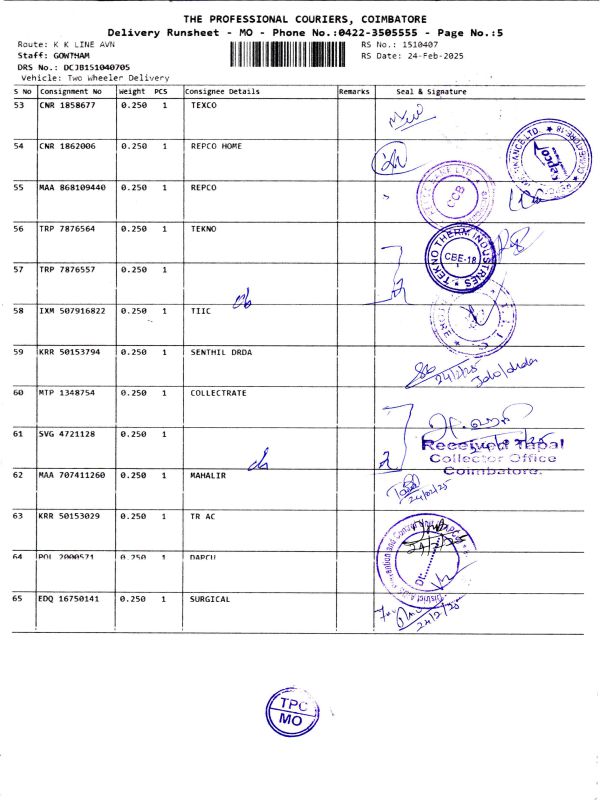 THE PROFESSIONAL COURIERS, COIMBATORE
Delivery Runsheet - MO - Phone No.:0422-3505555 - Page No.:5
Route: K K LINE AVN RS No.: 1510407
Staff: GOWTHAM RS Date: 24-Feb-2025
DRS No.: DCJB151040705
Vehicle: Two Wheeler Delivery
S No Consignment No Weight PCS Consignee Details Remarks Seal & Signature
53 CNR 1858677 0.250 1 TEXCO
54 CNR 1862006 0.250 1 REPCO HOME
55 MAA 868109440 0.250 1 REPCO
CCB
56 TRP 7876564 0.250 1 TEKNO
TEKNO THERM INDUSTRIES
CBE-18
57 TRP 7876557 0.250 1
58 IXM 507916822 0.250 1 TIIC
59 KRR 50153794 0.250 1 SENTHIL DRDA
24/2/25
60 MTP 1348754 0.250 1 COLLECTRATE
61 SVG 4721128 0.250 1
Received Tapal
Collector Office
Coimbatore.
62 MAA 707411260 0.250 1 MAHALIR
24/02/25
63 KRR 50153029 0.250 1 TR AC
24/2/25
64 POL 2000571 0.250 1 DAPCU
65 EDQ 16750141 0.250 1 SURGICAL
24/2/25
TPC
MO